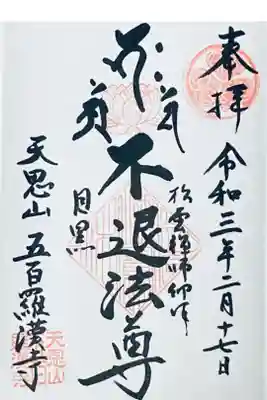 奉拝
令和三年二月十七日
松雲禅師御作
不退法尊
目黒
天恩山 五百羅漢寺